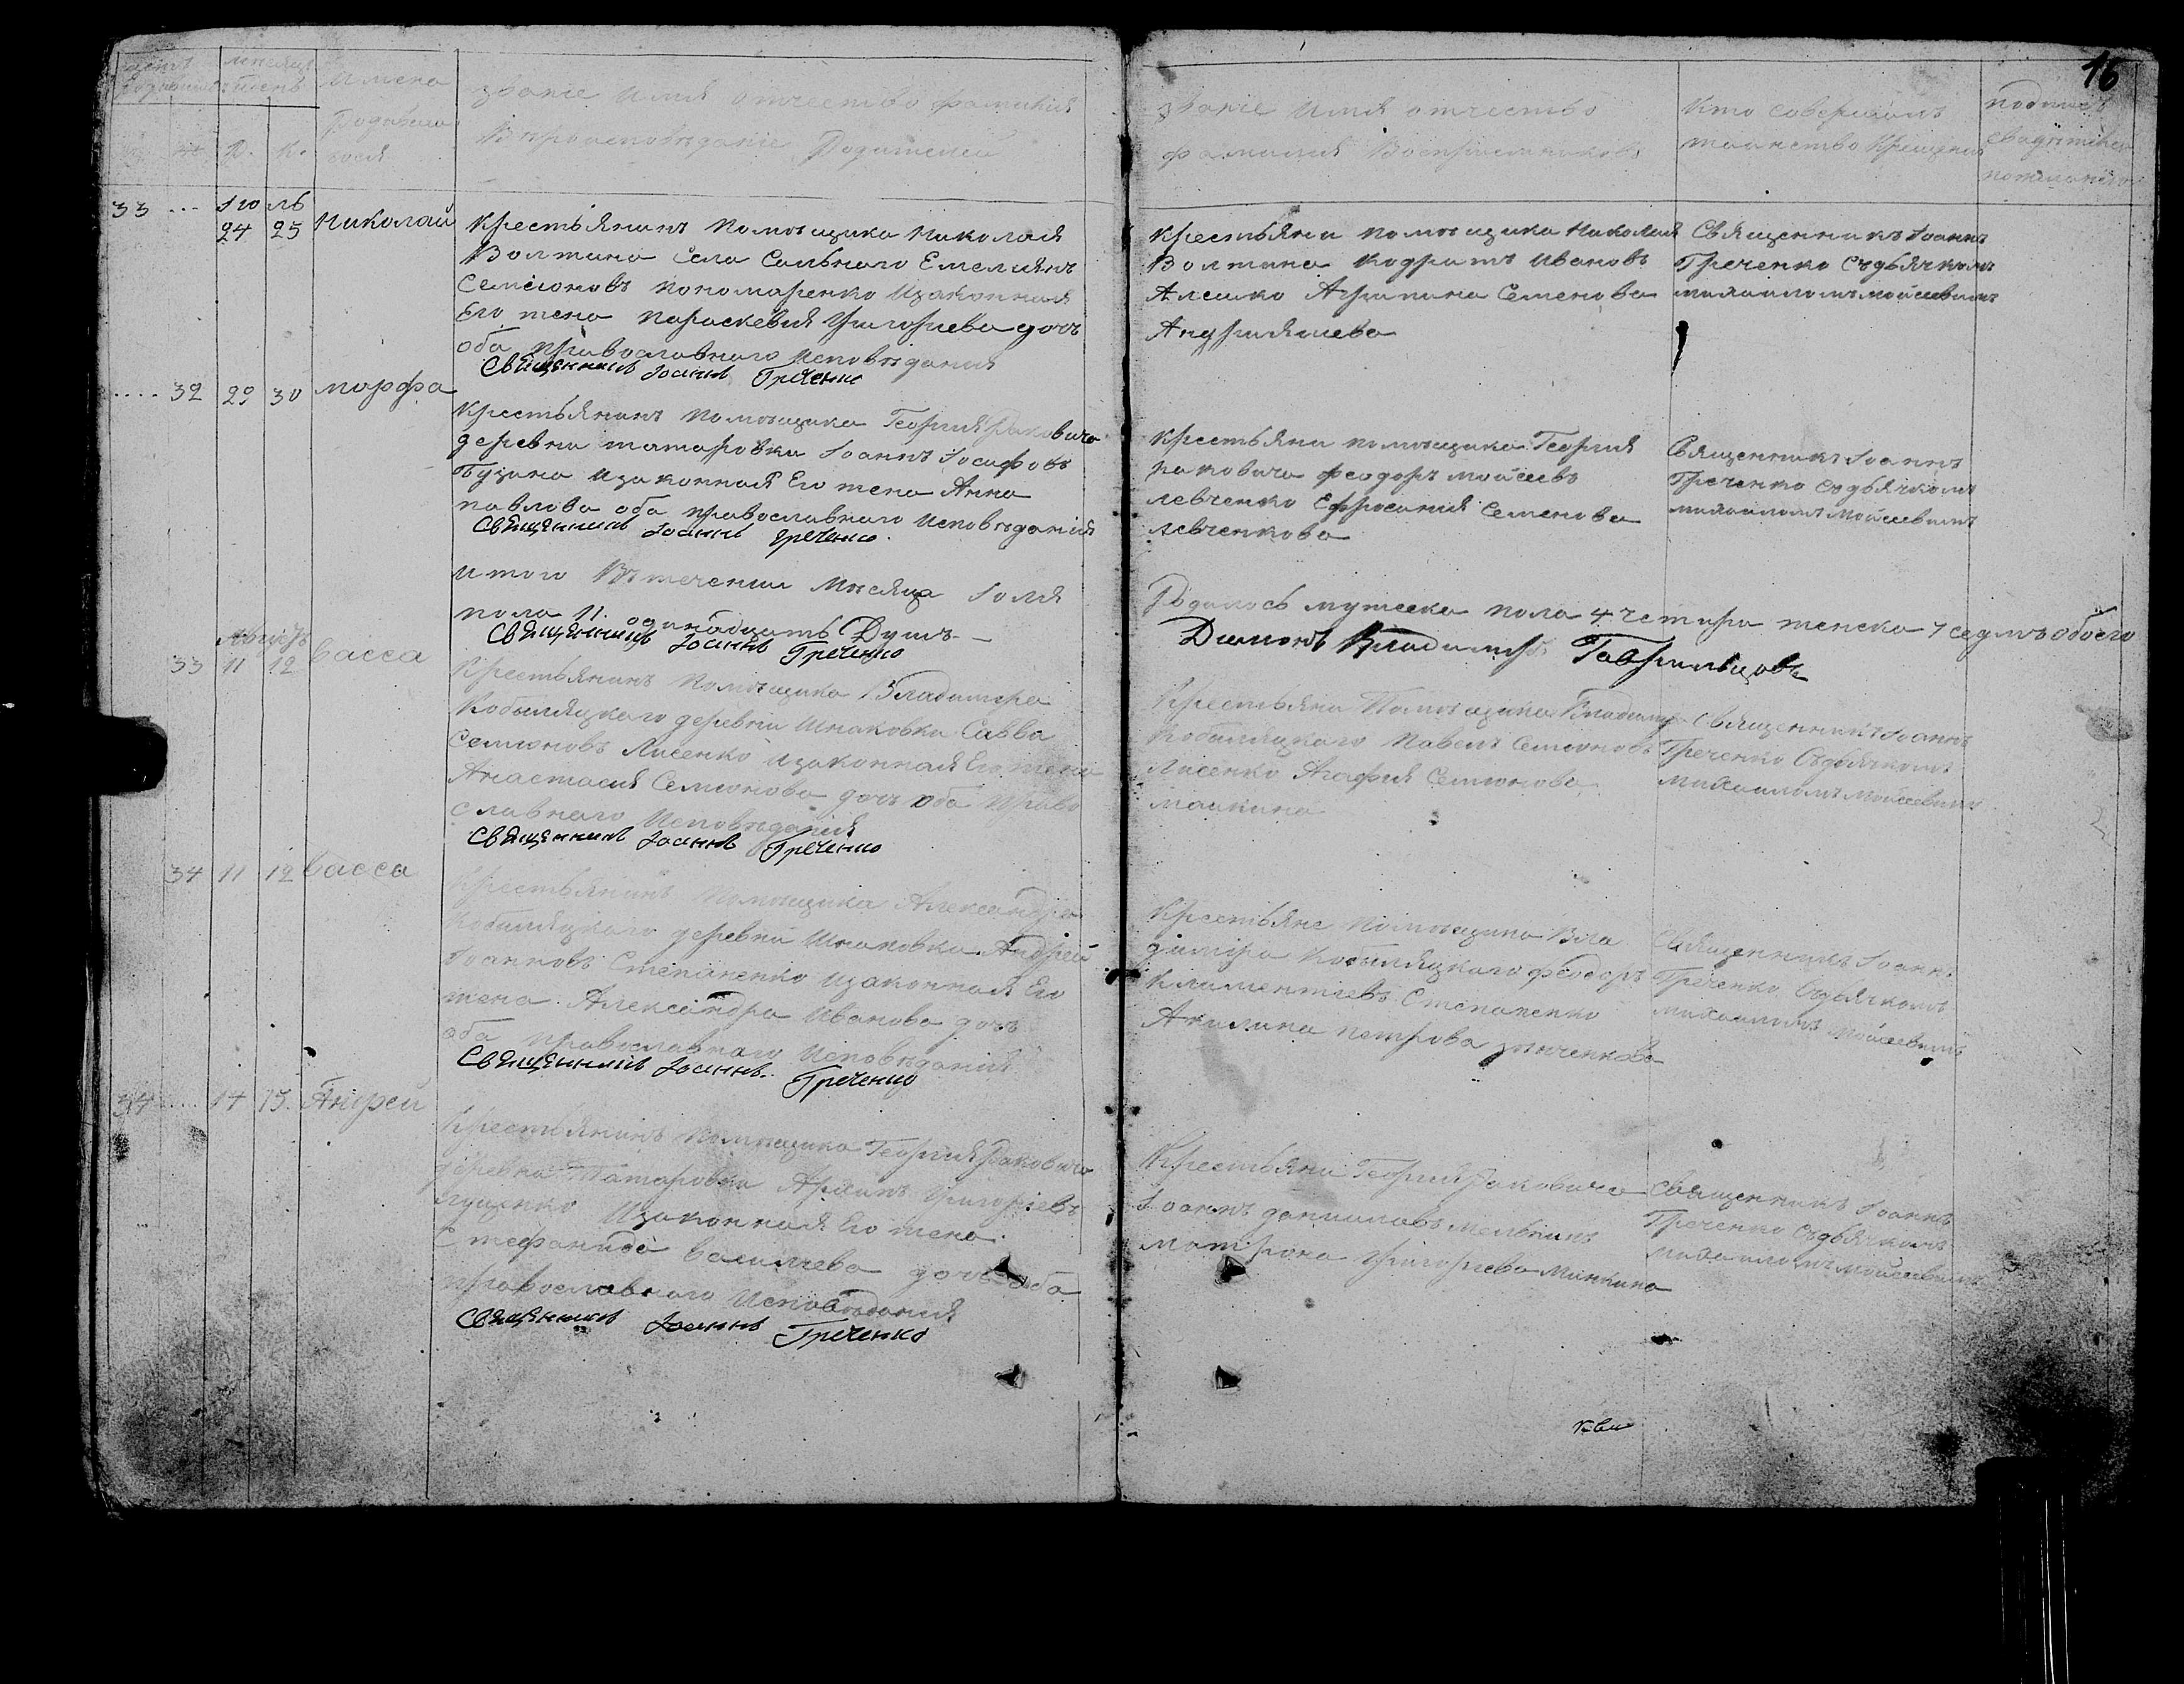 16
щетъ родившихъ
месяцъ и день
Имена родившагося
званіе Имя отчество фамилія
И вероисповѣданіе Родителей
званіе Имя отчество
фамилия Восприемниковъ
Кто совершалъ
таинство Крещения
м. ж. Р. К.
Іюль
33 ... 24 25 Николай
Крестьянинъ помѣщика Николая
Волтина села Сальнаго Емелиянъ
Семіоновъ пономаренко Изаконная
Его жена параскевия Григориева дочь
оба православнаго исповѣдания
Священникъ Іоаннъ Греченко
Крестьяни помѣщика Николая
Волтина Кодратъ Ивановъ
Алешко Агрипина Семенова
Андрияшева
Священникъ Іоаннъ
Греченко Съдьячкомъ
михаиломъ мойсевимъ
.... 32 29 30 марфа
Крестьянинъ помѣщика Георгия Раковича
деревни татаровки Іоаннъ Іосифовъ
бузина Изаконная Его жена Анна
павлова оба православнаго исповѣдания
Священникъ Іоаннъ Греченко.
Крестьяни помѣщика Георгия
раковича феодоръ мойсеевъ
левченко Ефросиния Семенова
левченкова
Священникъ Іоаннъ
Греченко съдьячкомъ
михаиломъ мойсевимъ
Итого Втечении месяца Іюля
Родилось мужеска пола 4. четири женска 7 седмъ обоего
пола 11. одинадцать Душъ.
Священникъ Іоаннъ Греченко
Диаконъ Владимиръ
Августъ
33 11 12 Васса
Крестьянинъ помѣщика Владимира
Кобиляцкаго деревни Шнаковки Савва
Семионовъ Лисенко изаконная Его жена
Анастасия Семионова дочь оба право
славнаго Исповѣдания
Священникъ Іоаннъ Греченко
Крестьяни Помѣщика Владимир
Кобиляцкаго Павелъ Семионовъ
Лисенко Агафия Семионова
Священникъ Іоаннъ
Греченко Съдьячкомъ
михаиломъ мойсевимъ
34 11 12 Васса
Крестьянинъ помѣщика Александра
Кобиляцкаго деревни Шнаковки Андрей
Іоанновъ Степаненко изаконная Его
жена Александра Иванова дочь
оба православнаго Исповѣдания
Священникъ Іоаннъ Греченко
Крестьяне помѣщика Вла
димира Кобиляцкаго феодоръ
Климентиевъ Степаненко
Акилина петрова зинченкова
Священникъ Іоаннъ
Греченко Съдьячкомъ
михаиломъ мойсевимъ
34 .... 14 15. Андрей
Крестьянинъ помѣщика Георгия Раковича
деревни Татаровки Григориевъ
Изаконная Его жена
Стефанида Василиева дочь оба
православнаго исповѣдания
Священникъ Іоаннъ Греченко
Крестьяни Георгия Раковича
Іоаннъ данииловъ мельникъ
матрона Григориева Минкина
Священникъ Іоаннъ
Греченко Съдьячкомъ
михаиломъ мойсевимъ